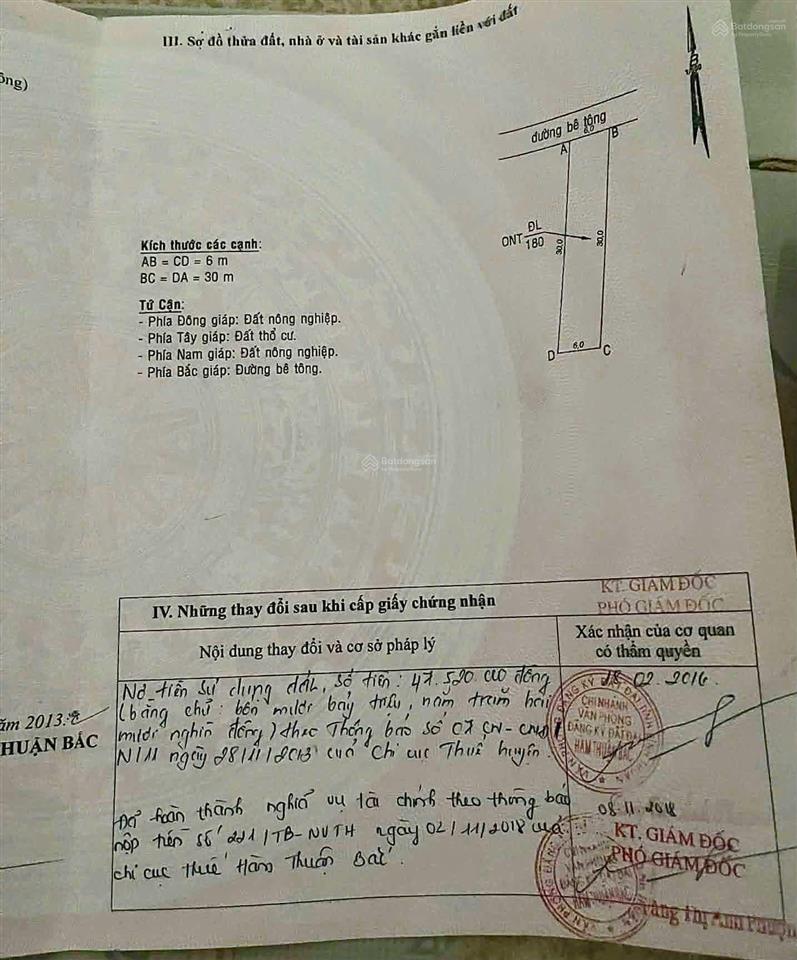 III. Sơ đồ thửa đất, nhà ở và tài sản khác gắn liền với đất
Batdongsan
by PropertyGuru
ông)
B
đường bê tông
6,0
A
B
ONT
ĐL
180
30,0
30,0
D
6,0
C
Kích thước các cạnh:
AB = CD = 6 m
BC = DA = 30 m
Tứ Cận:
- Phía Đông giáp: Đất nông nghiệp.
- Phía Tây giáp: Đất thổ cư.
- Phía Nam giáp: Đất nông nghiệp.
- Phía Bắc giáp: Đường bê tông.
Batdongsan
by PropertyGuru
IV. Những thay đổi sau khi cấp giấy chứng nhận
KT. GIÁM ĐỐC
PHÓ GIÁM ĐỐC
Nội dung thay đổi và cơ sở pháp lý
Xác nhận của cơ quan
có thẩm quyền
Nợ tiền sử dụng đất, số tiền: 47.520.000 đồng
(bằng chữ: bốn mươi bảy triệu, năm trăm hai
mươi nghìn đồng) theo Thông báo số 07
N/11 ngày 28/11/2013 của Chi cục Thuế huyện.
02.2016
CHI NHÁNH
VĂN PHÒNG
ĐĂNG KÝ ĐẤT ĐAI
HÀM THUẬN BẮC
năm 2013
HUẬN BẮC
Đã hoàn thành nghĩa vụ tài chính theo thông báo
nộp tiền số 221/TB-NVTH ngày 02/11/2018 của
chi cục thuế Hàm Thuận Bắc.
08.11.2018
KT. GIÁM ĐỐC
PHÓ GIÁM ĐỐC
CHI NHÁNH
VĂN PHÒNG
HÀM THUẬN BẮC
Thị Anh